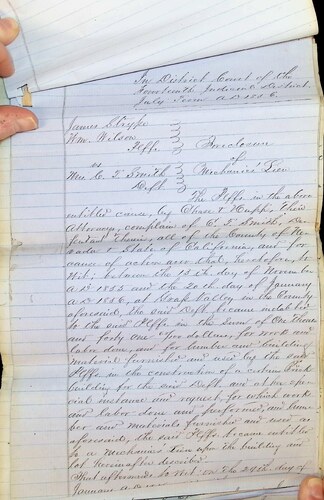 In District Court of the
Fourteenth Judicial District
July Term A.D. 1856
James Stryke
Wm. Wilson
Plffs
vs
Foreclosure
of
Mechanics' Lien
C. T. Smith
Deft.
The Plffs in the above
entitled cause, by their
Attorneys, complain of C. T. Smith, De-
fendant therein, all of the County of Ne-
vada & State of California, and for
cause of action aver that, heretofore, to
Wit; between the 15th day of November
A.D. 1855 and the 20th day of January
A.D. 1856, at Grass Valley in the County
aforesaid, the said Deft. became indebted
to the said Plffs in the sum of One Thous-
and forty one dollars, for work and
labor done, and for lumber and building
material furnished and used by the said
Plffs in the construction of a certain
building for the said Deft. and at her spe-
cial instance and request, for which work
and labor done and performed, and lum-
ber and materials furnished and used as
aforesaid, the said Plffs became entitled
to a Mechanics Lien upon the building and
lot hereinafter described
That afterwards to Wit: on the 29th day of
January